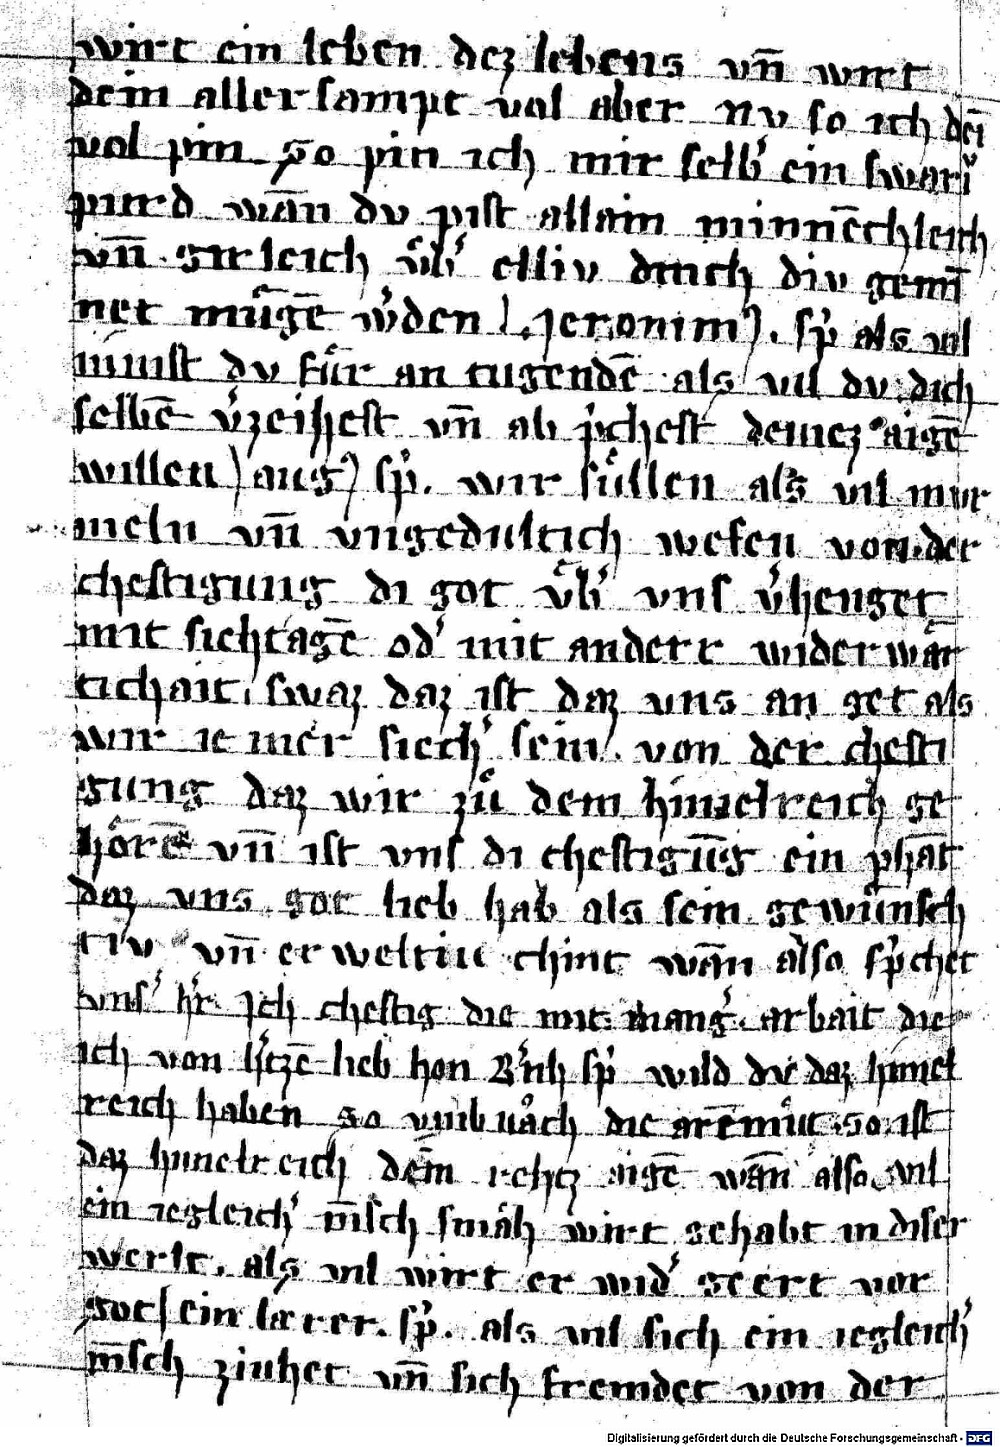 wirt ein leben dez lebens vn̄ wirt
dein aller sampt vol aber nv so ich dei̅
vol pin so pin ich mir selb' ein swarͥ
purd wān dv pist allain minnēchleich
vn̄ girleich v̊b' elliv dinch div gemi̅
net mügē w'den Jeronim9 sp' als vil
nimst dv für an tugendē als vil dv dich
selbē v'zeihest vn̄ ab p'chest deinez aigē
willen aug9 sp'. wir süllen als vil mur
meln vn̄ vngedultich wesen von der
chestigung di got v̊b' vns v'henget
mit sichtagē od' mit anderr widerwär
tichait, swaz daz ist daz vns an get als
wir ie mer siech' sein von der chesti
gung daz wir zů dem himelreich ge
hörē vn̄ ist vns di chestigūg ein phāt
daz vns got lieb hab als sein gewünsch
tiv vn̄ erweltiu chint wān also sp'chet
vns' h'r Ich chestig die mit mang' arbait die
ich von h'tzē lieb hon B'nh sp' wild dv daz himel
reich haben so vmbvach die aremüt so ist
daz himelreich dem rehtz aigē wān also vil
ein iegleich' mēsch smäh wirt gehabt in diser
werlt, als vil wirt er wid' geert vor
got ein lærer. sp'. als vil sich ein iegleich'
mēsch ziuhet vn̄ sich fremdet von der
Digitalisierung gefördert durch die Deutsche Forschungsgemeinschaft - DFG